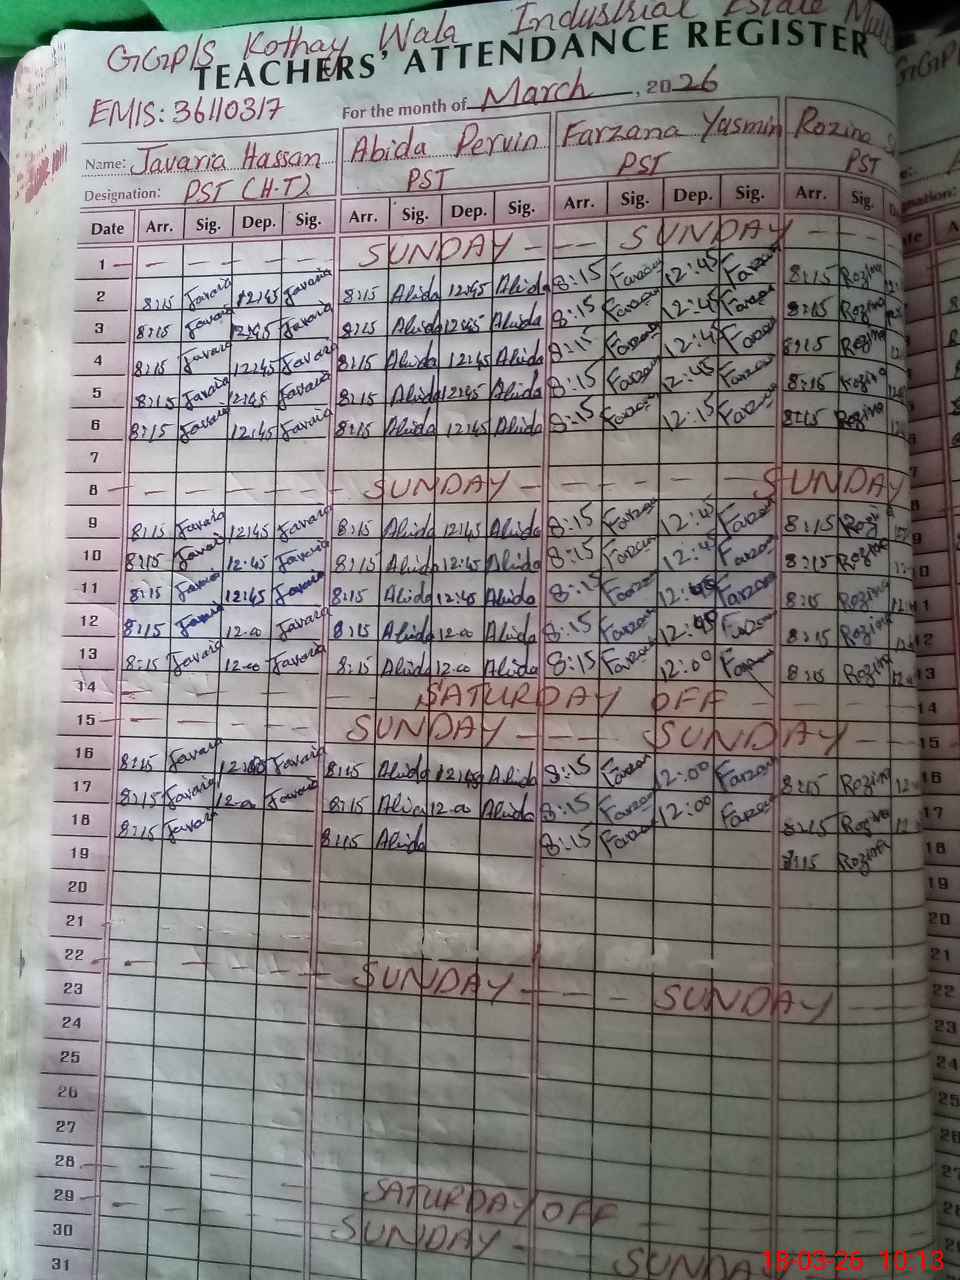 GGP/S Kothay Wala Industrial Estate Mul
TEACHERS' ATTENDANCE REGISTER
EMIS: 36110317 For the month of March, 2026
Name: Javaria Hassan Abida Pervin Farzana Yasmin Rozina
Designation: PST (H.T) PST PST PST
Date Arr. Sig. Dep. Sig. Arr. Sig. Dep. Sig. Arr. Sig. Dep. Sig. Arr. Sig.
1 SUNDAY SUNDAY
2 8:15 Javaria 12:45 Javaria 8:15 Abida 12:45 Abida 8:15 Farzana 12:45 Farzana 8:15 Rozina
3 8:15 Javaria 12:45 Javaria 8:15 Abida 12:45 Abida 8:15 Farzana 12:45 Farzana 8:15 Rozina
4 8:15 Javaria 12:45 Javaria 8:15 Abida 12:45 Abida 8:15 Farzana 12:45 Farzana 8:15 Rozina
5 8:15 Javaria 12:45 Javaria 8:15 Abida 12:45 Abida 8:15 Farzana 12:45 Farzana 8:15 Rozina
6 8:15 Javaria 12:45 Javaria 8:15 Abida 12:45 Abida 8:15 Farzana 12:15 Farzana 8:15 Rozina
7
8 SUNDAY SUNDAY
9 8:15 Javaria 12:45 Javaria 8:15 Abida 12:45 Abida 8:15 Farzana 12:45 Farzana 8:15 Rozina
10 8:15 Javaria 12:45 Javaria 8:15 Abida 12:45 Abida 8:15 Farzana 12:45 Farzana 8:15 Rozina
11 8:15 Javaria 12:45 Javaria 8:15 Abida 12:45 Abida 8:15 Farzana 12:45 Farzana 8:15 Rozina
12 8:15 Javaria 12:00 Javaria 8:15 Abida 12:00 Abida 8:15 Farzana Farzana 8:15 Rozina
13 8:15 Javaria 12:00 Javaria 8:15 Abida 12:00 Abida 8:15 Farzana 12:00 8:15 Rozina
14 SATURDAY OFF
15 SUNDAY SUNDAY
16 8:15 Javaria Javaria 8:15 Abida Abida 8:15 Farzana 12:00 Farzana 8:15 Rozina
17 8:15 Javaria 12:00 Javaria 8:15 Abida 12:00 Abida 8:15 Farzana 12:00 Farzana 8:15 Rozina
18 8:15 Javaria 8:15 Abida 8:15 Farzana 8:15 Rozina
19
20
21
22 SUNDAY SUNDAY
23
24
25
26
27
28 SATURDAY OFF
29 SUNDAY SUNDAY
30
31
18-03-26 10:13